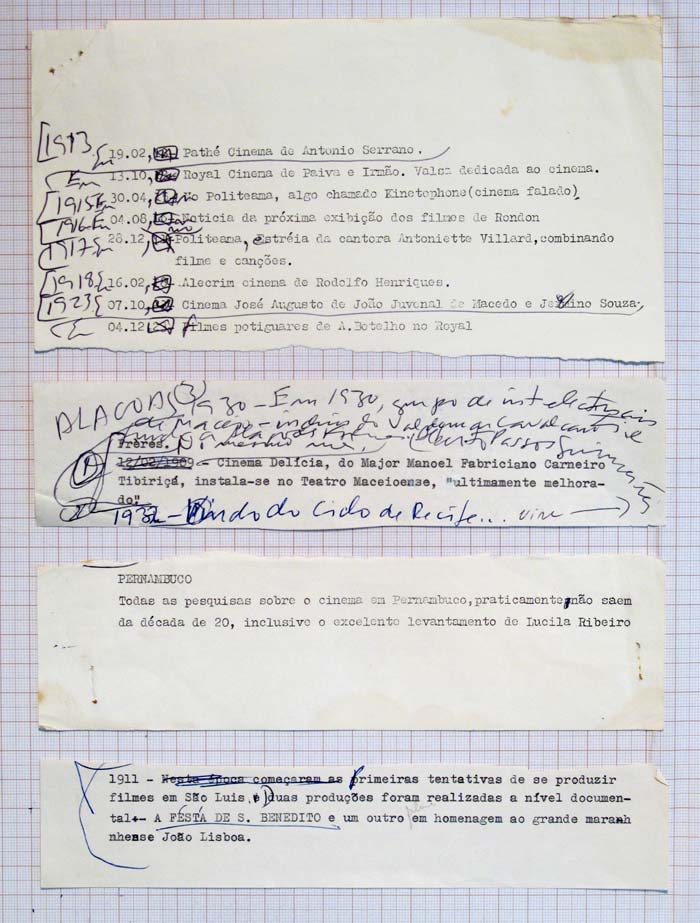 1913 Em 19.02, Pathé Cinema de Antonio Serrano.
Em 13.10, Royal Cinema de Paiva e Irmão. Valsa dedicada ao cinema.
1915 Em 30.04, No Politeama, algo chamado Kinetophone(cinema falado)
1916 Em 04.08, Noticia da próxima exibição dos filmes de Rondon
1917 Em 28.12, Politeama, estréia da cantora Antoniette Villard,combinando
filme e canções.
1918 Em 16.02, Alecrim cinema de Rodolfo Henriques.
1923 Em 07.10, Cinema José Augusto de João Juvenal de Macedo e Souza,
Em 04.12 filmes potiguares de A.Botelho no Royal
ALAGOAS 3 1930 - Em 1930, grupo de intelectuais
de Maceió - Valdemar Cavalcanti e
Frères.
1 12/02/1909 - Cinema Delícia, do Major Manoel Fabriciano Carneiro
Tibiriçá, instala-se no Teatro Maceioense, "ultimamente melhora-
do"
2 1932 - Vindo do Ciclo de Recife... vire
PERNAMBUCO
Todas as pesquisas sobre o cinema em Pernambuco,praticamente,não saem
da década de 20, inclusive o excelente levantamento de Lucila Ribeiro
1911 - Nesta época começaram as primeiras tentativas de se produzir
filmes em São Luis, Duas produções foram realizadas a nível documen-
tal - A FESTA DE S. BENEDITO e um outro em homenagem ao grande maranh
nhense João Lisboa.